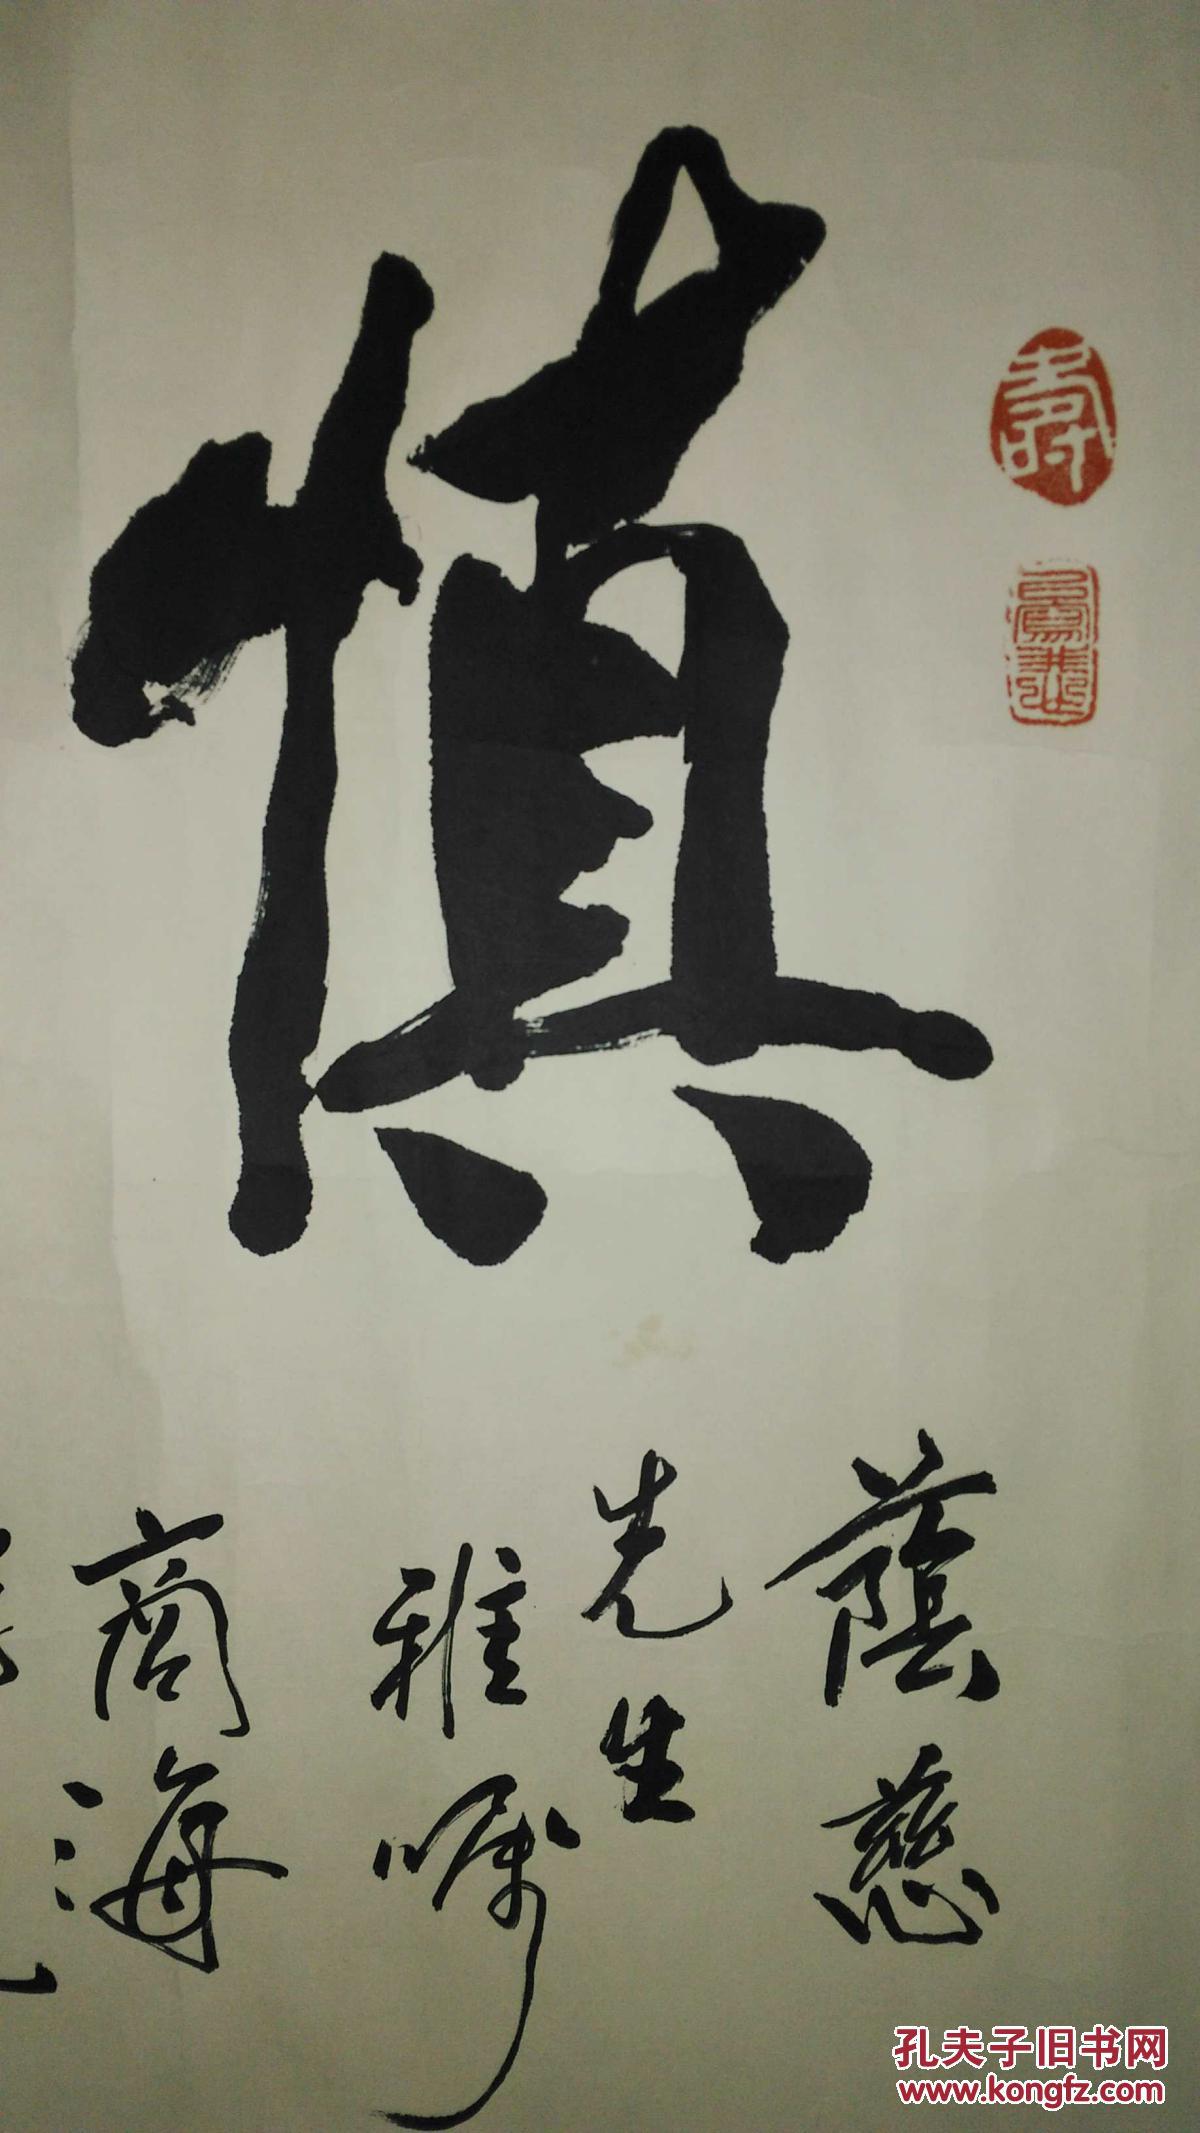 慎
壽
蔭慈
先生
雅嘱
商海
孔夫子旧书网
www.kongfz.com